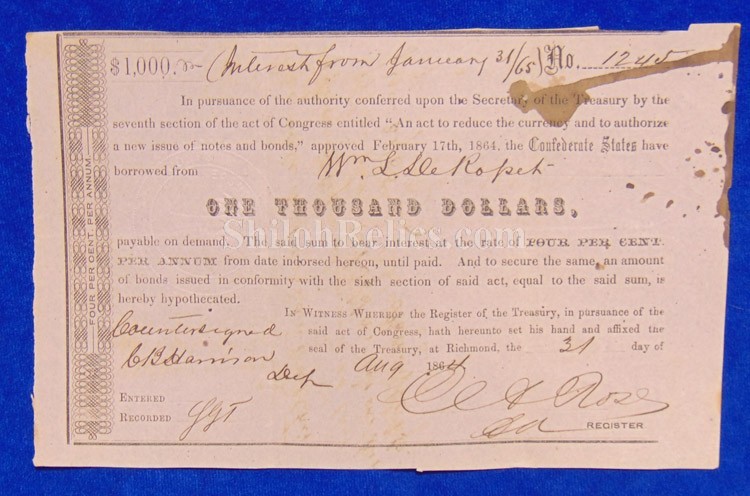 $1,000. (Interest from January 31/65) No. 1245
In pursuance of the authority conferred upon the Secretary of the Treasury by the
seventh section of the act of Congress entitled "An act to reduce the currency and to authorize
a new issue of notes and bonds," approved February 17th, 1864, the Confederate States have
borrowed from Wm L. DeKopet
ONE THOUSAND DOLLARS,
ShilohRelics.com
payable on demand. The said sum to bear interest at the rate of FOUR PER CENT.
PER ANNUM from date indorsed hereon, until paid. And to secure the same, an amount
of bonds issued in conformity with the sixth section of said act, equal to the said sum, is
hereby hypothecated.
IN WITNESS WHEREOF the Register of the Treasury, in pursuance of the
said act of Congress, hath hereunto set his hand and affixed the
seal of the Treasury, at Richmond, the 31 day of
Aug 1864
Countersigned
CB Harrison
Dep
ENTERED
RECORDED
Rose
REGISTER
FOUR PER CENT. PER ANNUM.